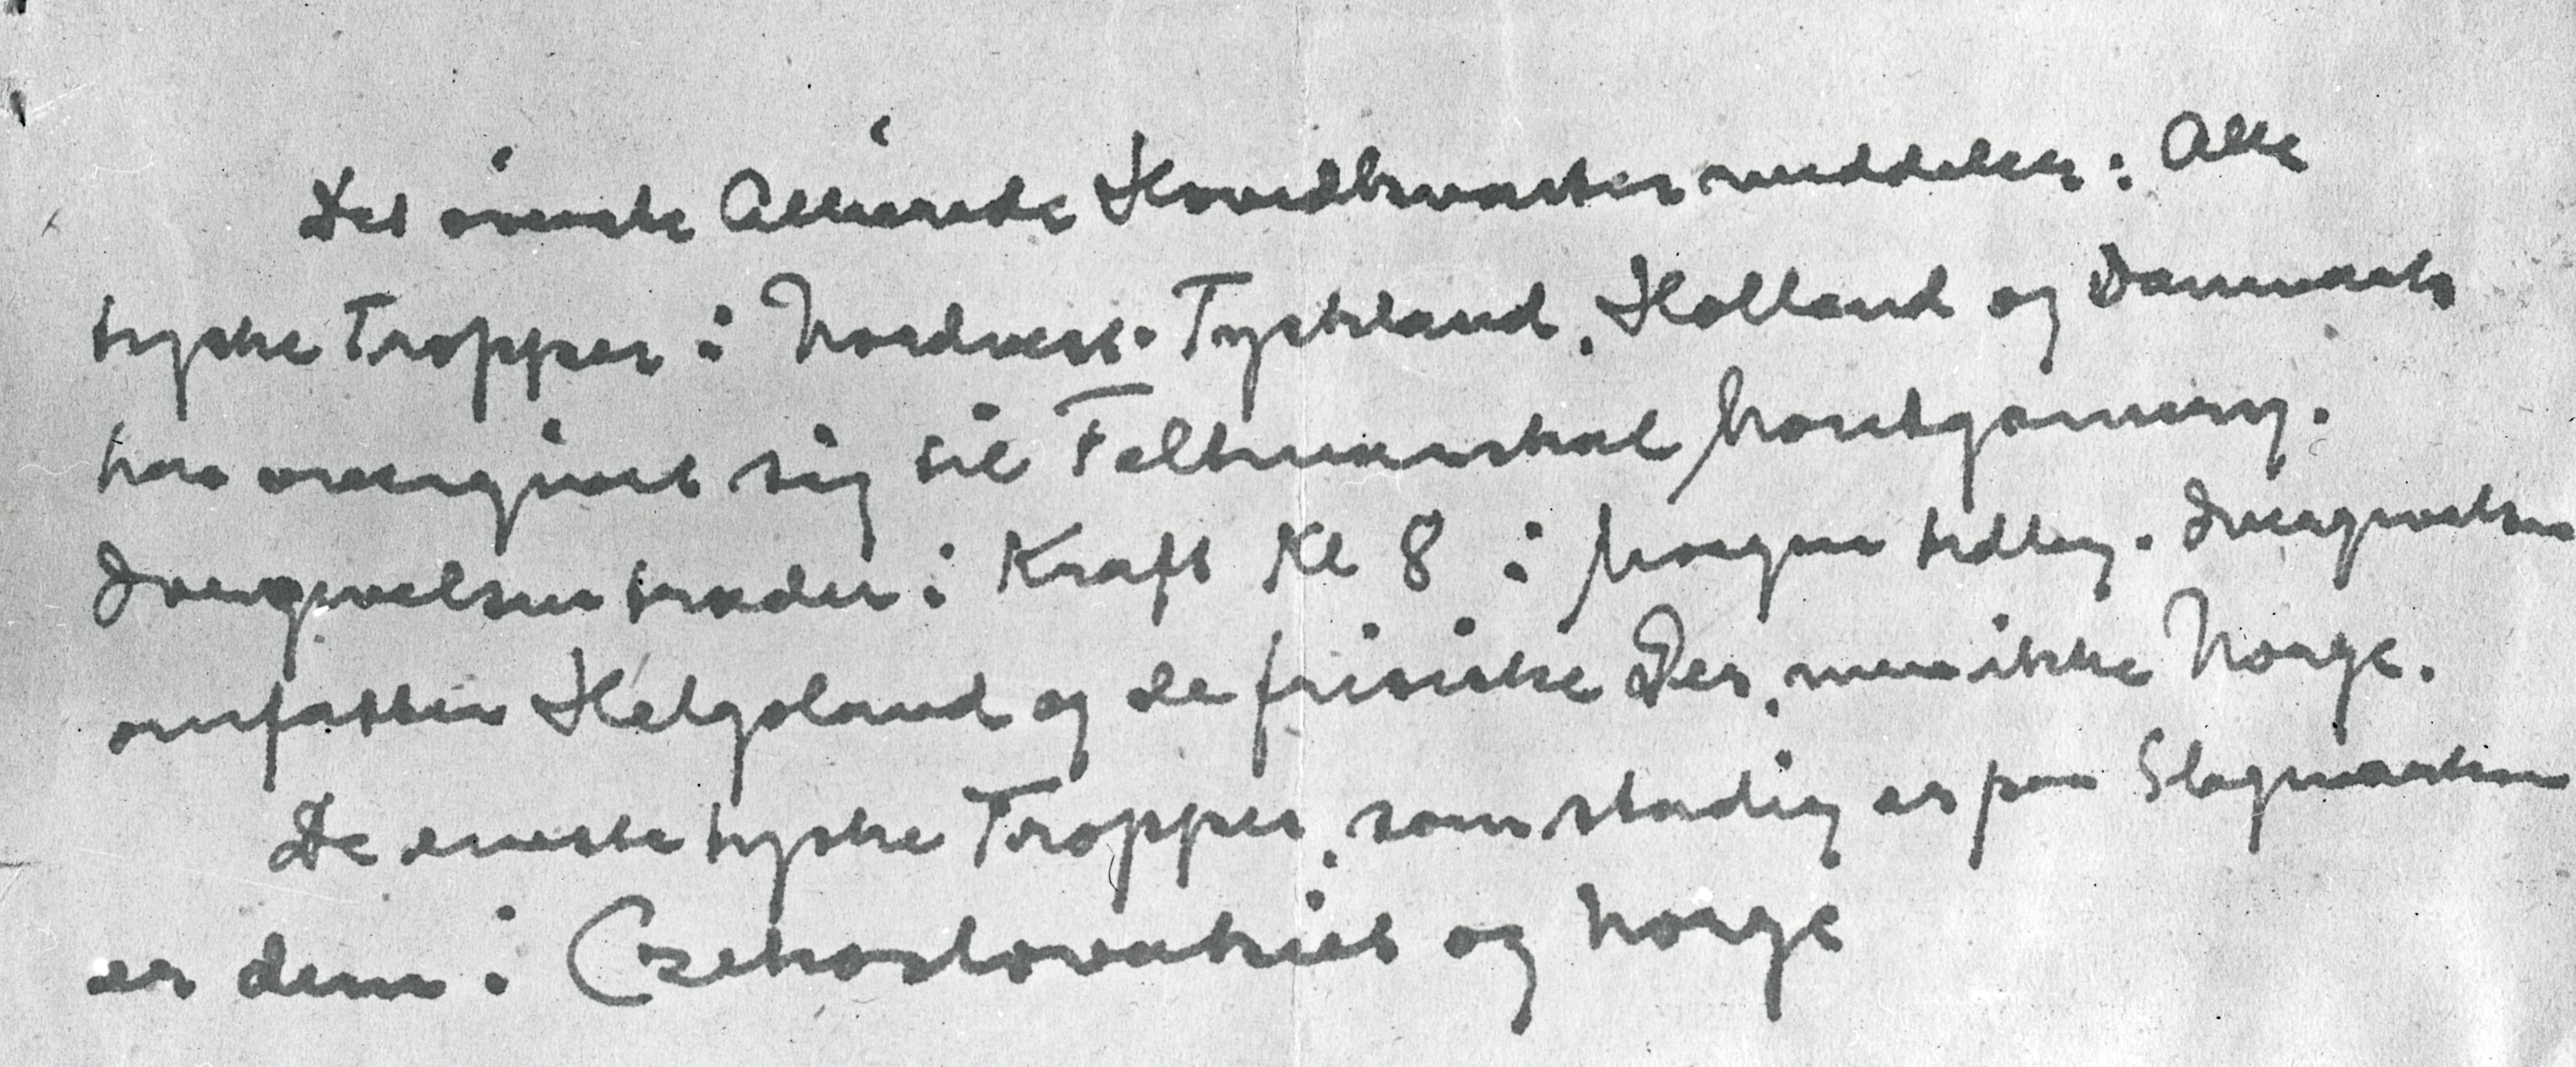 Det øverste Allierede Hovedkvarter meddeler: Alle
tyske Tropper i Nordvest-Tyskland, Holland og Danmark
har overgivet sig til Feltmarskal Montgomery.
Overgivelsen træder i Kraft Kl 8 i Morgen tidlig. Overgivelsen
omfatter Helgoland og de frisiske Øer, men ikke Norge.
De eneste tyske Tropper, som stadig er paa Slagmarken
er dem i Czekoslovakiet og Norge